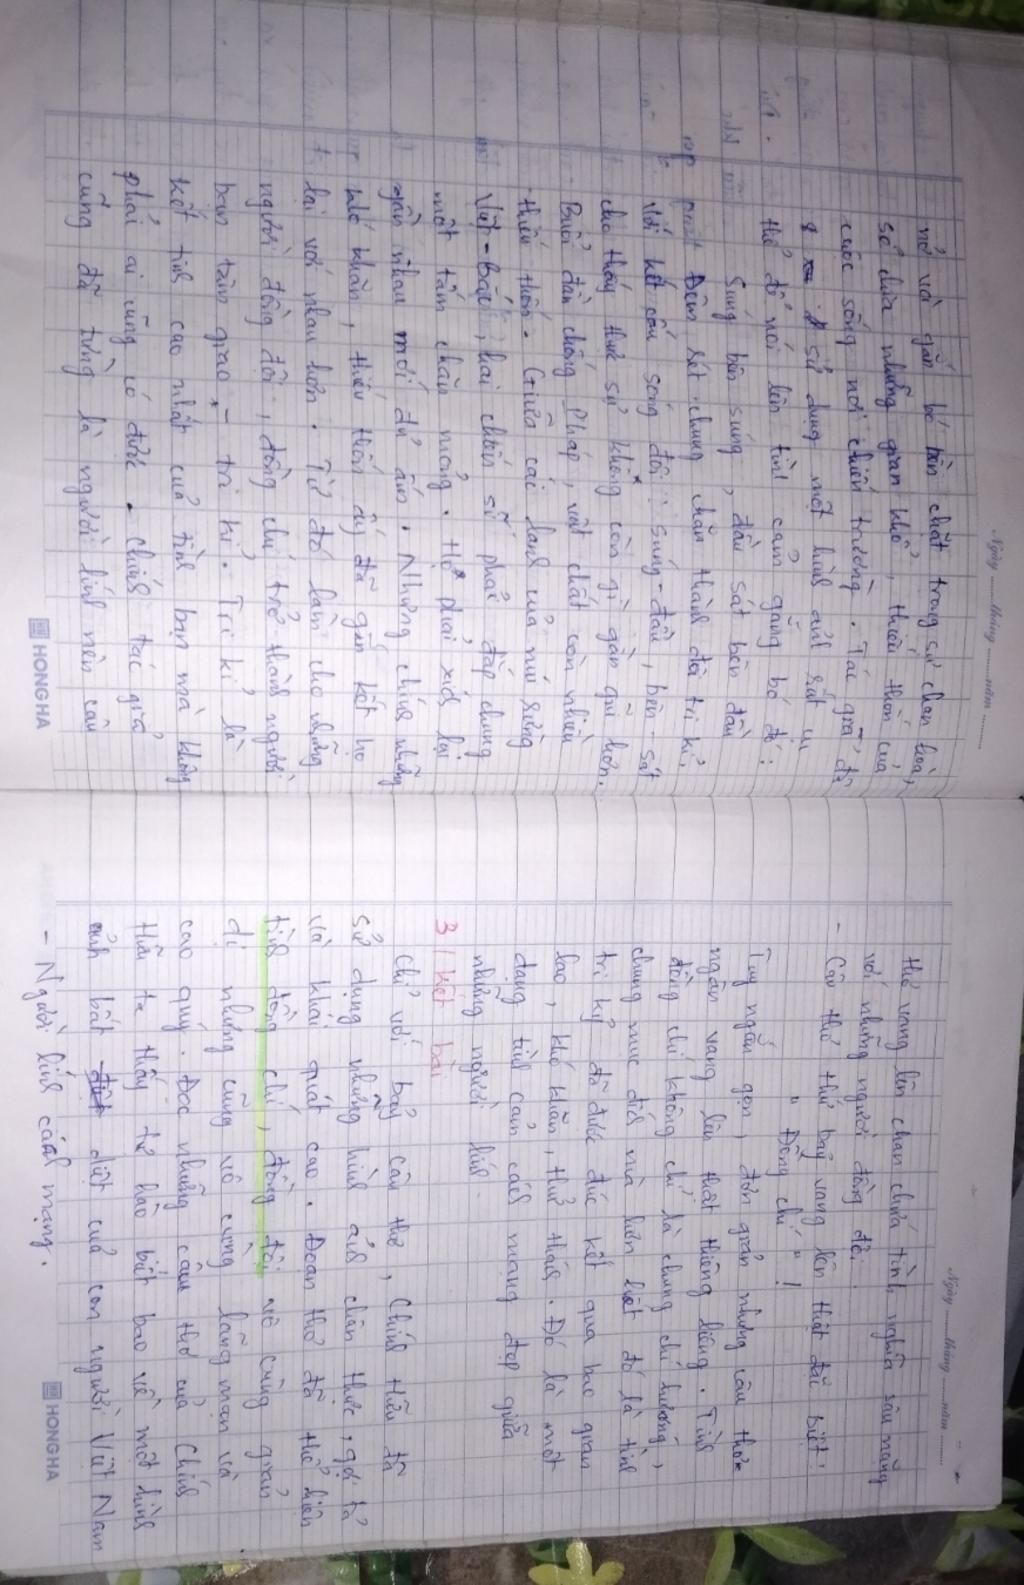 Ngày ........tháng ........năm ...........
nở và gắn bó bền chặt trong sự chan hoà,
sẻ chia những gian khổ, thiếu thốn của
cuộc sống nơi chiến trường. Tác giả đã
sử dụng một hình ảnh rất cụ
thể để nói lên tình cảm gắng bó đó:
Súng bên súng, đầu sát bên đầu
Đêm rét chung chăn thành đôi tri kỉ.
Với kết cấu song đôi: súng-đầu, bên-sát
cho thấy thực sự không còn gì gần gũi hơn.
Buổi đầu chống Pháp, vật chất còn nhiều
thiếu thốn. Giữa cái lạnh của núi rừng
Việt-Bắc, hai chiến sĩ phải đắp chung
một tấm chăn mỏng. Họ phải xích lại
gần nhau mới đủ ấm. Nhưng chính những
khó khăn, thiếu thốn ấy đã gắn kết họ
lại với nhau hơn. Từ đó làm cho những
người đồng đội, đồng chí trở thành người
bạn tâm giao - tri kỉ. Tri kỉ là
kết tinh cao nhất của tình bạn mà không
phải ai cũng có được. Chính tác giả
cũng đã từng là người lính nên câu
HONG HA
Ngày ........tháng ........năm ...........
thơ vang lên chan chứa tình nghĩa sâu nặng
với những người đồng đội.
- Câu thơ thứ bảy vang lên thật đặc biệt:
" Đồng chí " !
Tuy ngắn gọn, đơn giản nhưng câu thơ
ngân vang lên thật thiêng liêng. Tình
đồng chí không chỉ là chung chí hướng,
chung mục đích mà hơn hết đó là tình
tri kỷ đã được đúc kết qua bao gian
lao, khó khăn, thử thách. Đó là một
dạng tình cảm cách mạng đẹp giữa
những người lính.
3/ Kết bài
Chỉ với bảy câu thơ, Chính Hữu đã
sử dụng những hình ảnh chân thực, gợi tả
và khái quát cao. Đoạn thơ đã thể hiện
tình đồng chí, đồng đội vô cùng giản
dị nhưng cũng vô cùng lãng mạn và
cao quý. Đọc những câu thơ của Chính
Hữu ta thấy tự hào biết bao về một hình
ảnh bất diệt của con người Việt Nam
- Người lính cách mạng.
HONG HA